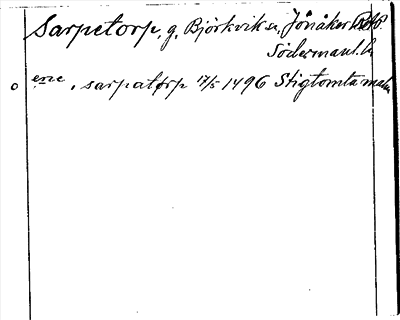 Sarpetorp, g. Björkvik sn, Jönåker
Södermanl. l.
ene, sarpatorp 17/5 1496 Stigtomta